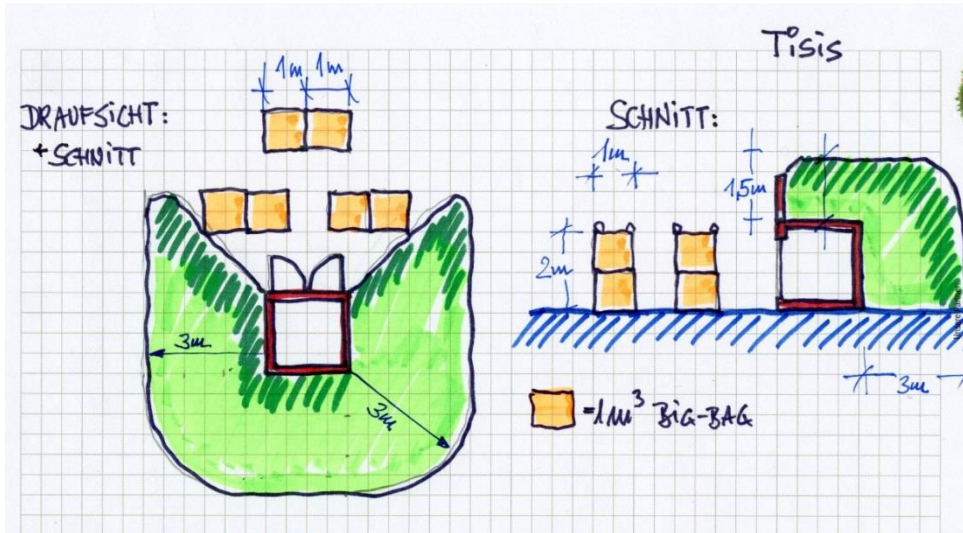 Tisis
DRAUFSICHT:
+ SCHNITT
1m 1m
3m
3m
SCHNITT:
1m
1,5m
2m
3m
= 1m³ BIG-BAG